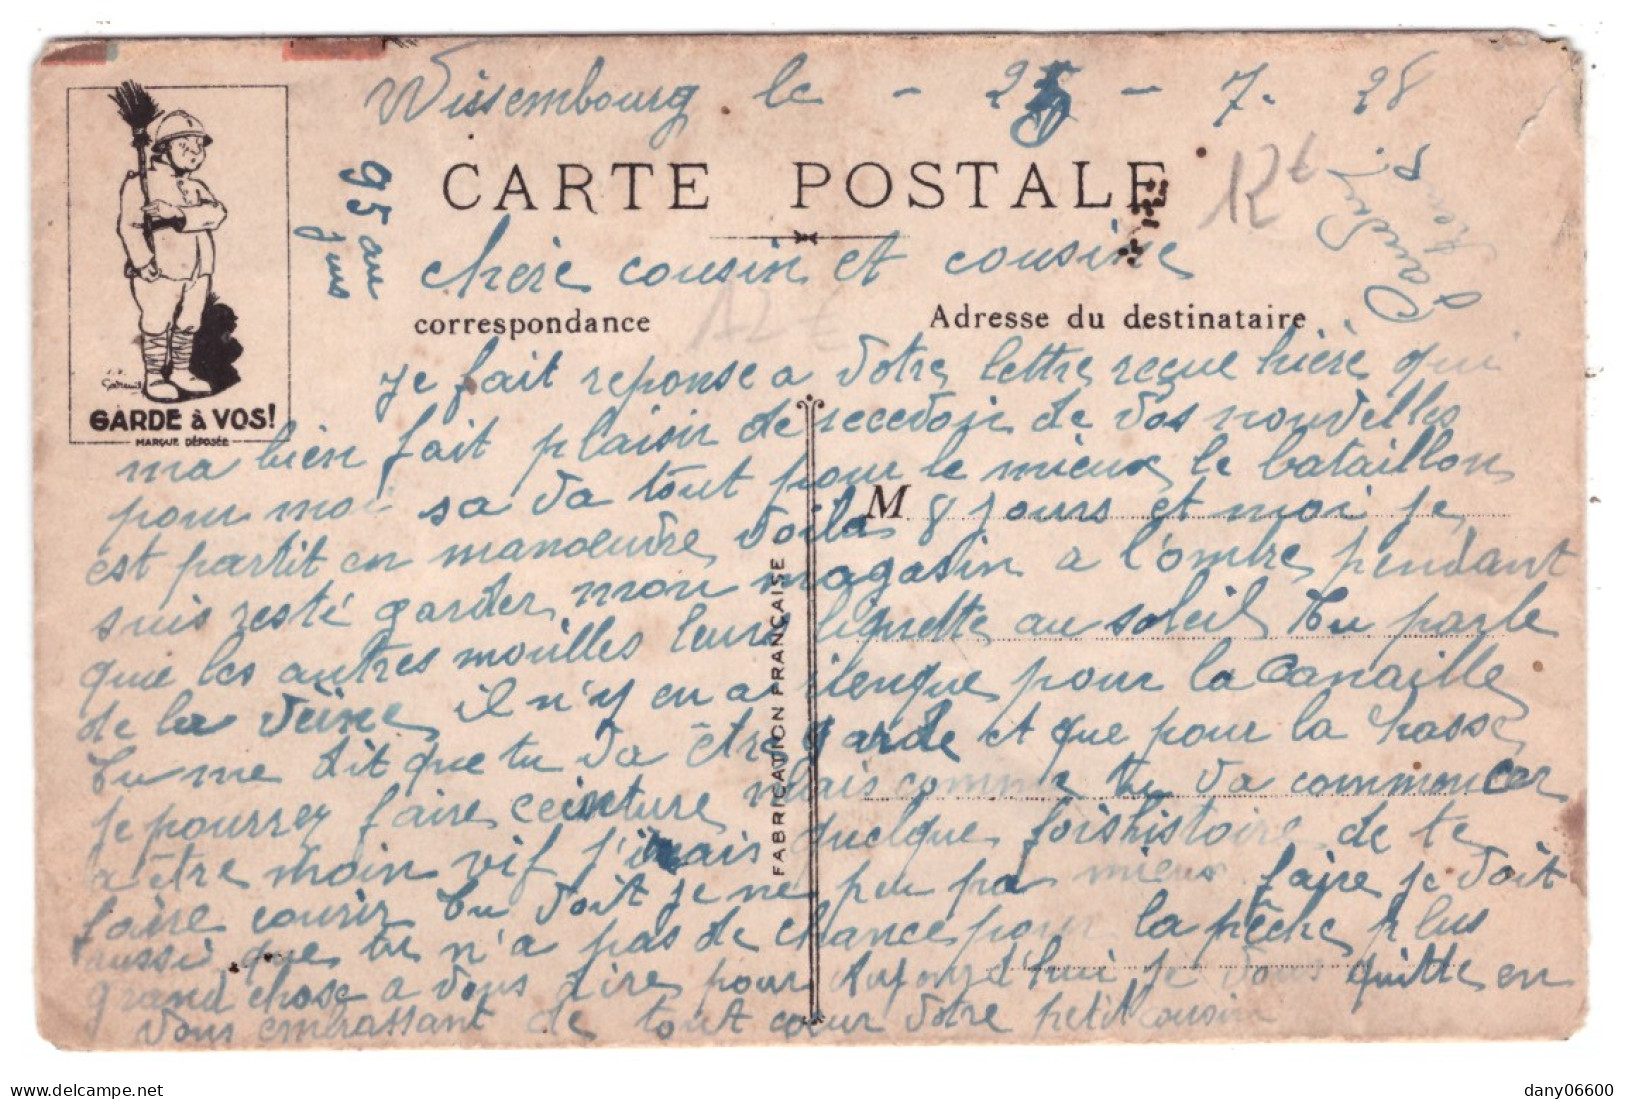 Wissembourg le - 25 - 7. 28
CARTE POSTALE
12€
95 au
jus
chère cousin et cousine
correspondance
Adresse du destinataire
12€
je fait reponse a votre lettre reçue hière qui
GARDE à VOS!
MARQUE DÉPOSÉE
ma bien fait plaisir de recevoir de vos nouvelles
pour moi sa va tout pour le mieux le bataillon
est partit en manoeuvre voila 8 jours et moi je
M
suis resté garder mon magasin a l'ombre pendant
que les autres mouilles leurs liquette au soleil tu parle
de la veine il n'y en a rienque pour la canaille
tu me dit que tu va être garde et que pour la chasse
je pourrez faire ceinture mais comme tu va commencer
a être moin vif j'irais quelque fois histoire de te
faire courir tu voit je ne peu pa mieux faire je voit
aussi que tu n'a pas de chance pour la pêche plus
grand chose a vous dire pour aujourd'hui je vous quitte en
vous embrassant de tout cœur votre petit cousin
FABRICATION FRANÇAISE
dany06600